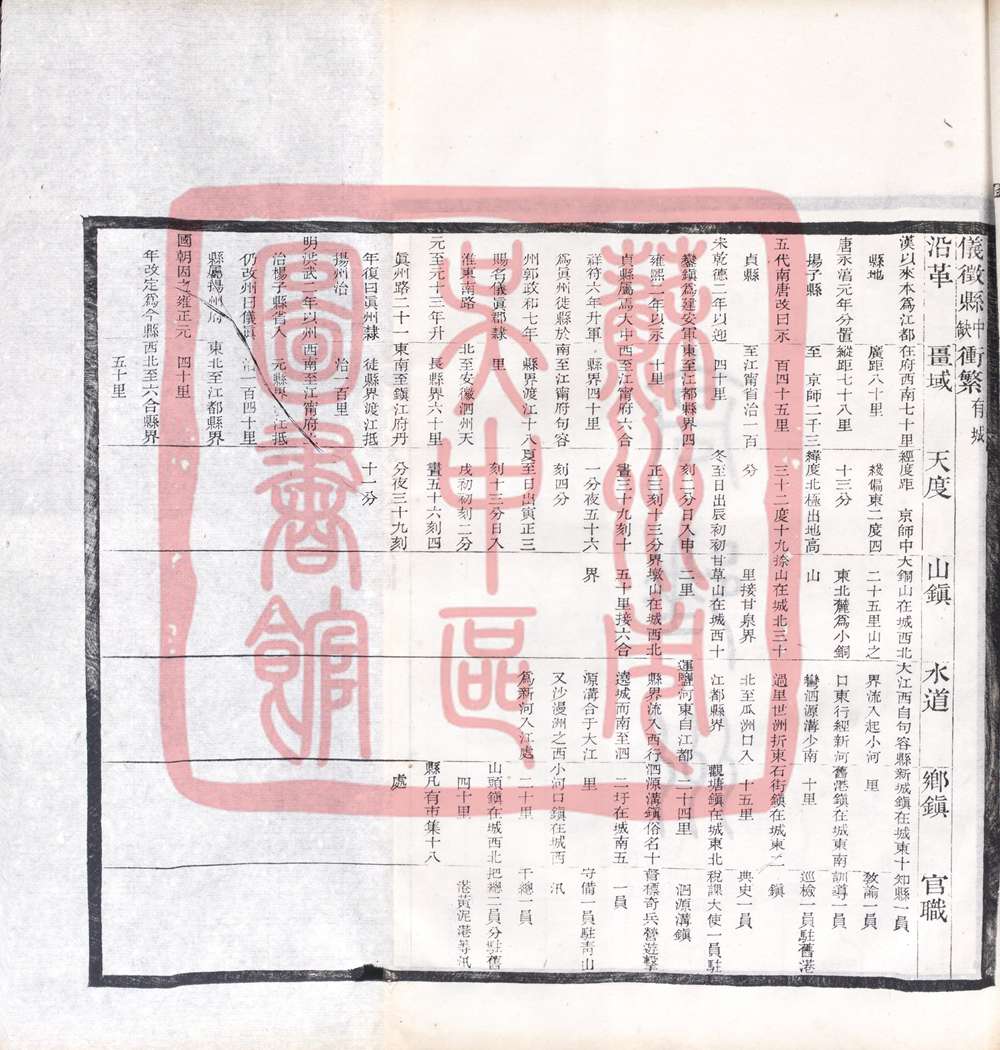 儀徵縣中缺衝繁有城
沿革
漢以來本為江都
縣地
唐永湻元年分置
揚子縣
五代南唐改曰永
貞縣
宋乾德二年以迎
鑾鎮為建安軍
雍熙二年以永
貞縣屬焉大中
祥符六年升軍
為眞州徙縣於
州郭政和七年
賜名儀眞郡隸
淮東南路
元至元十三年升
眞州路二十一
年復曰眞州隸
揚州治
明洪武二年以州
治揚子縣省入
仍改州曰儀眞
縣屬揚州府
國朝因之雍正元
年改定為今縣
疆域
在府西南七十里
廣距八十里
縱距七十八里
至 京師二千三
百四十五里
至江甯省治一百
四十里
東至江都縣界四
十里
西至江甯府六合
縣界四十里
南至江甯府句容
縣界渡江十八
里
北至安徽泗州天
長縣界六十里
東南至鎮江府丹
徒縣界渡江抵
治一百里
西南至江甯府上
元縣界渡江抵
治一百四十里
東北至江都縣界
四十里
西北至六合縣界
五十里
天度
經度距 京師中
綫偏東二度四
十三分
緯度北極出地高
三十二度十九
分
冬至日出辰初初
刻二分日入申
正三刻十三分
晝三十九刻十
一分夜五十六
刻四分
夏至日出寅正三
刻十三分日入
戌初初刻二分
晝五十六刻四
分夜三十九刻
十一分
山鎮
大銅山在城西北
二十五里山之
東北麓為小銅
山
捺山在城北三十
里接甘泉界
甘草山在城西十
二里
界墩山在城西北
五十里接六合
界
水道
大江西自句容縣
界流入起小河
口東行經新河
鸞泗源溝少南
過里世洲折東
北至瓜洲口入
江都縣界
運鹽河東自江都
縣界流入西行
遶城而南至泗
源溝合于大江
又沙漫洲之西
為新河入江處
鄉鎮
新城鎮在城東十
里
舊港鎮在城東南
十里
石街鎮在城東二
十五里
觀塘鎮在城東北
二十四里
泗源溝鎮俗名十
二圩在城南五
里
小河口鎮在城西
二十里
山頭鎮在城西北
四十里
縣凡有市集十八
處
官職
知縣一員
敎諭一員
訓導一員
巡檢一員駐舊港
鎮
典史一員
稅課大使一員駐
泗源溝鎮
督標奇兵營遊擊
一員
守備一員駐青山
汛
千總一員
把總二員分駐舊
港黃泥港等汛
蘇州市
吳中區
圖書館